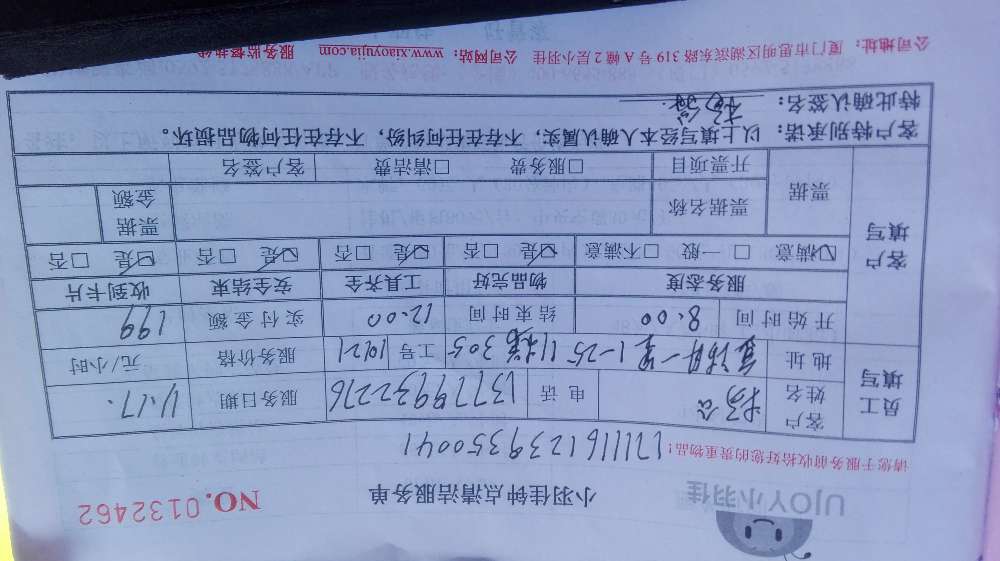 UJOY小羽佳
小羽佳钟点清洁服务单
NO.0132462
请您于服务前收拾好您的贵重物品!
171116123935004 1
员工填写
客户姓名 杨 电话 13779932276 服务日期 11.17.
地址 1-25 305 工号 1921 服务价格 元/小时
开始时间 8.00 结束时间 12.00 实付金额 199
客户填写
服务态度 物品完好 工具齐全 安全结束 收到卡片
☑满意 □一般 □不满意 ☑是 □否 ☑是 □否 ☑是 □否 ☑是 □否
票据 票据名称 票据金额
开票项目 □服务费 □清洁费 客户签名
客户特别承诺:以上填写经本人确认属实,不存在任何纠纷,不存在任何物品损坏。
特此确认签名:杨
公司地址:厦门市思明区湖滨东路 319 号 A 幢 2 层小羽佳 公司网站:www.xiaoyujia.com 服务监督热线